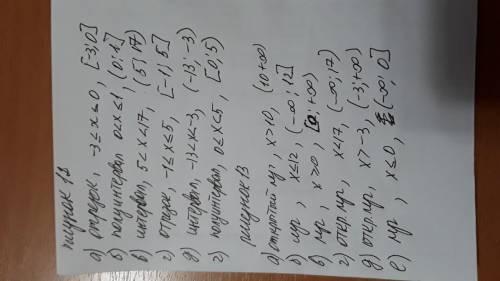 рисунок 12
а) отрезок, -3≤x≤0, [-3;0]
б) полуинтервал 0<x≤1, (0;1]
в) интервал, 5<x<17, (5;17)
г) отрезок, -1≤x≤5, [-1;5]
д) интервал, -13<x<-3, (-13;-3)
г) полуинтервал, 0≤x<5, [0;5)
рисунок 13
а) открытый луч, x>10, (10+∞)
б) луч, x≤12, (-∞;12]
в) луч, x≥0, [0;+∞)
г) откр. луч, x<17, (-∞;17)
д) откр. луч, x>-3, (-3;+∞)
е) луч, x≤0, (-∞;0]